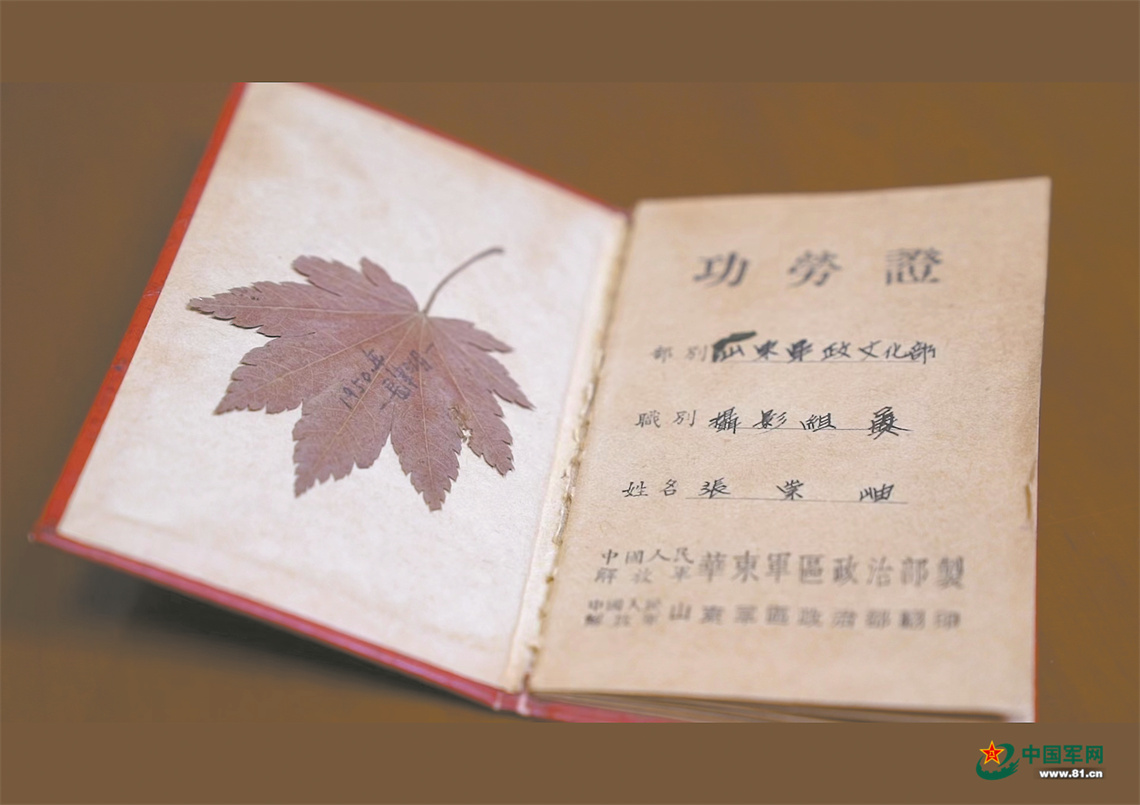 1950年
功勞證
部別 山東軍政文化部
職別 攝影組員
姓名 張榮岫
中國人民解放軍 華東軍區政治部製
中國人民解放軍 山東軍區政治部翻印
中国军网
www.81.cn